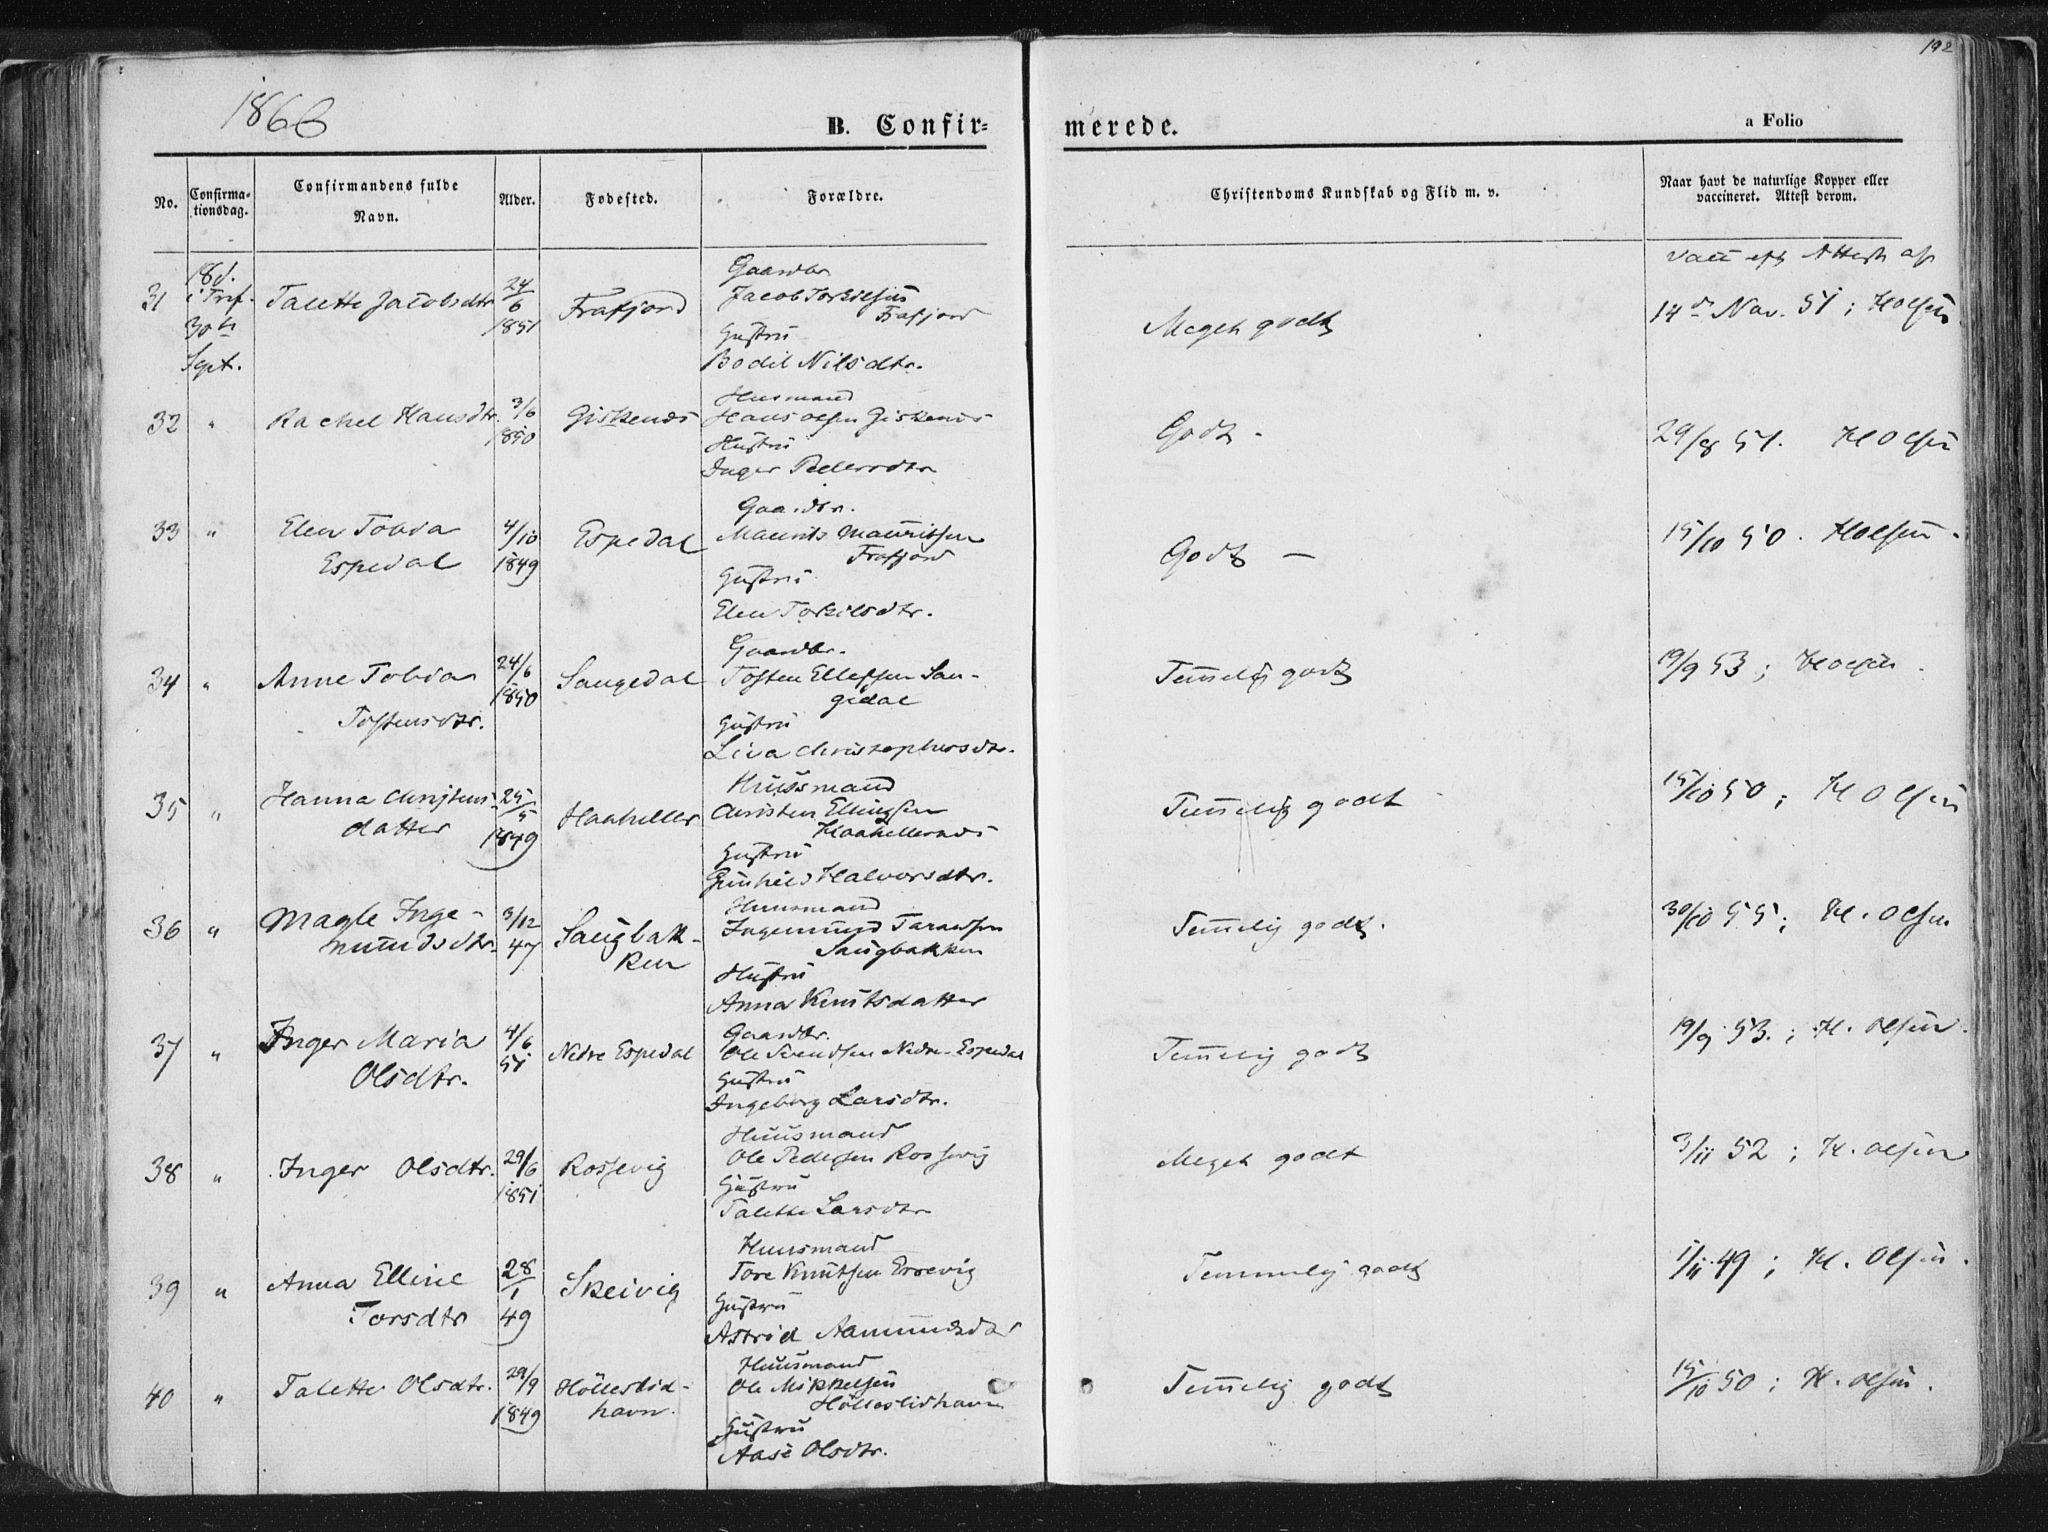 192
1866
B. Confir=
merede.
a Folio
No.
Confirma-
tionsdag.
Confirmandens fulde
Navn.
Alder.
Fødested.
Forældre.
Christendoms Kundskab og Flid m. v.
Naar havt de naturlige Kopper eller
vaccineret. Attest derom.
31
18 d.
i Tref.
30te
Sept.
Talette Jacobsdtr
24/6
1851
Frafjord
Gaardbr
Jacob Torkilsen
Frafjord
Hustru
Bodil Nilsdtr.
Meget godt
Vacc eft Attest af
14de Nov. 51; H Olsen
32
"
Rachel Hansdtr.
3/6
1850
Giskenæs
Husmand
Hans Olsen Giskenæs
Hustru
Inger Pedersdtr
Godt -
29/8 51. H Olsen
33
"
Elen Tobia
Espedal
4/10
1849
Espedal
Gaardbr.
Maurits Mauritsen
Frafjord
Hustru
Elen Torkilsdtr.
Godt -
15/10 50. H Olsen.
34
"
Anne Tobia
Tostensdtr.
24/6
1850
Saugedal
Gaardbr.
Tosten Ellefsen Sau-
gedal
Hustru
Liva Christophersdtr.
Temelig godt
19/9 53; H Olsen.
35
"
Hanna Christens-
datter
25/5
1849
Haaheller
Huusmand
Christen Ellingsen
Haahellernæs
Hustru
Gunhild Halvorsdtr.
Temelig godt
15/10 50; H Olsen
36
"
Magle Inge-
mundsdtr.
3/12
47
Saugbak-
ken
Huusmand
Ingemund Taraldsen
Saugbakken
Hustru
Anna Knutsdatter
Temelig godt.
30/10 55; H. Olsen
37
"
Inger Maria
Olsdtr.
4/6
51
Nedre Espedal
Gaardbr.
Ole Svendsen Nedre-Espedal
Hustru
Ingeborg Larsdtr.
Temelig godt
19/9 53.; H. Olsen.
38
"
Inger Olsdtr.
29/6
1851
Rossevig
Huusmand
Ole Pedersen Rossevig
Hustru
Talette Larsdtr
Meget godt
3/11 52; H. Olsen
39
"
Anna Elline
Torsdtr
28/1
49
Skeivig
Huusmand
Tore Knutsen Ersevig
Hustru
Astrid Aamundsdtr
Temmelig godt
1/11 49; H. Olsen.
40
"
Talette Olsdtr.
29/9
1849
Hölleslid-
havn.
Huusmand
Ole Mikkelsen
Hölleslidhavn
Hustru
Aase Olsdtr.
Temelig godt
15/10 50; H. Olsen.